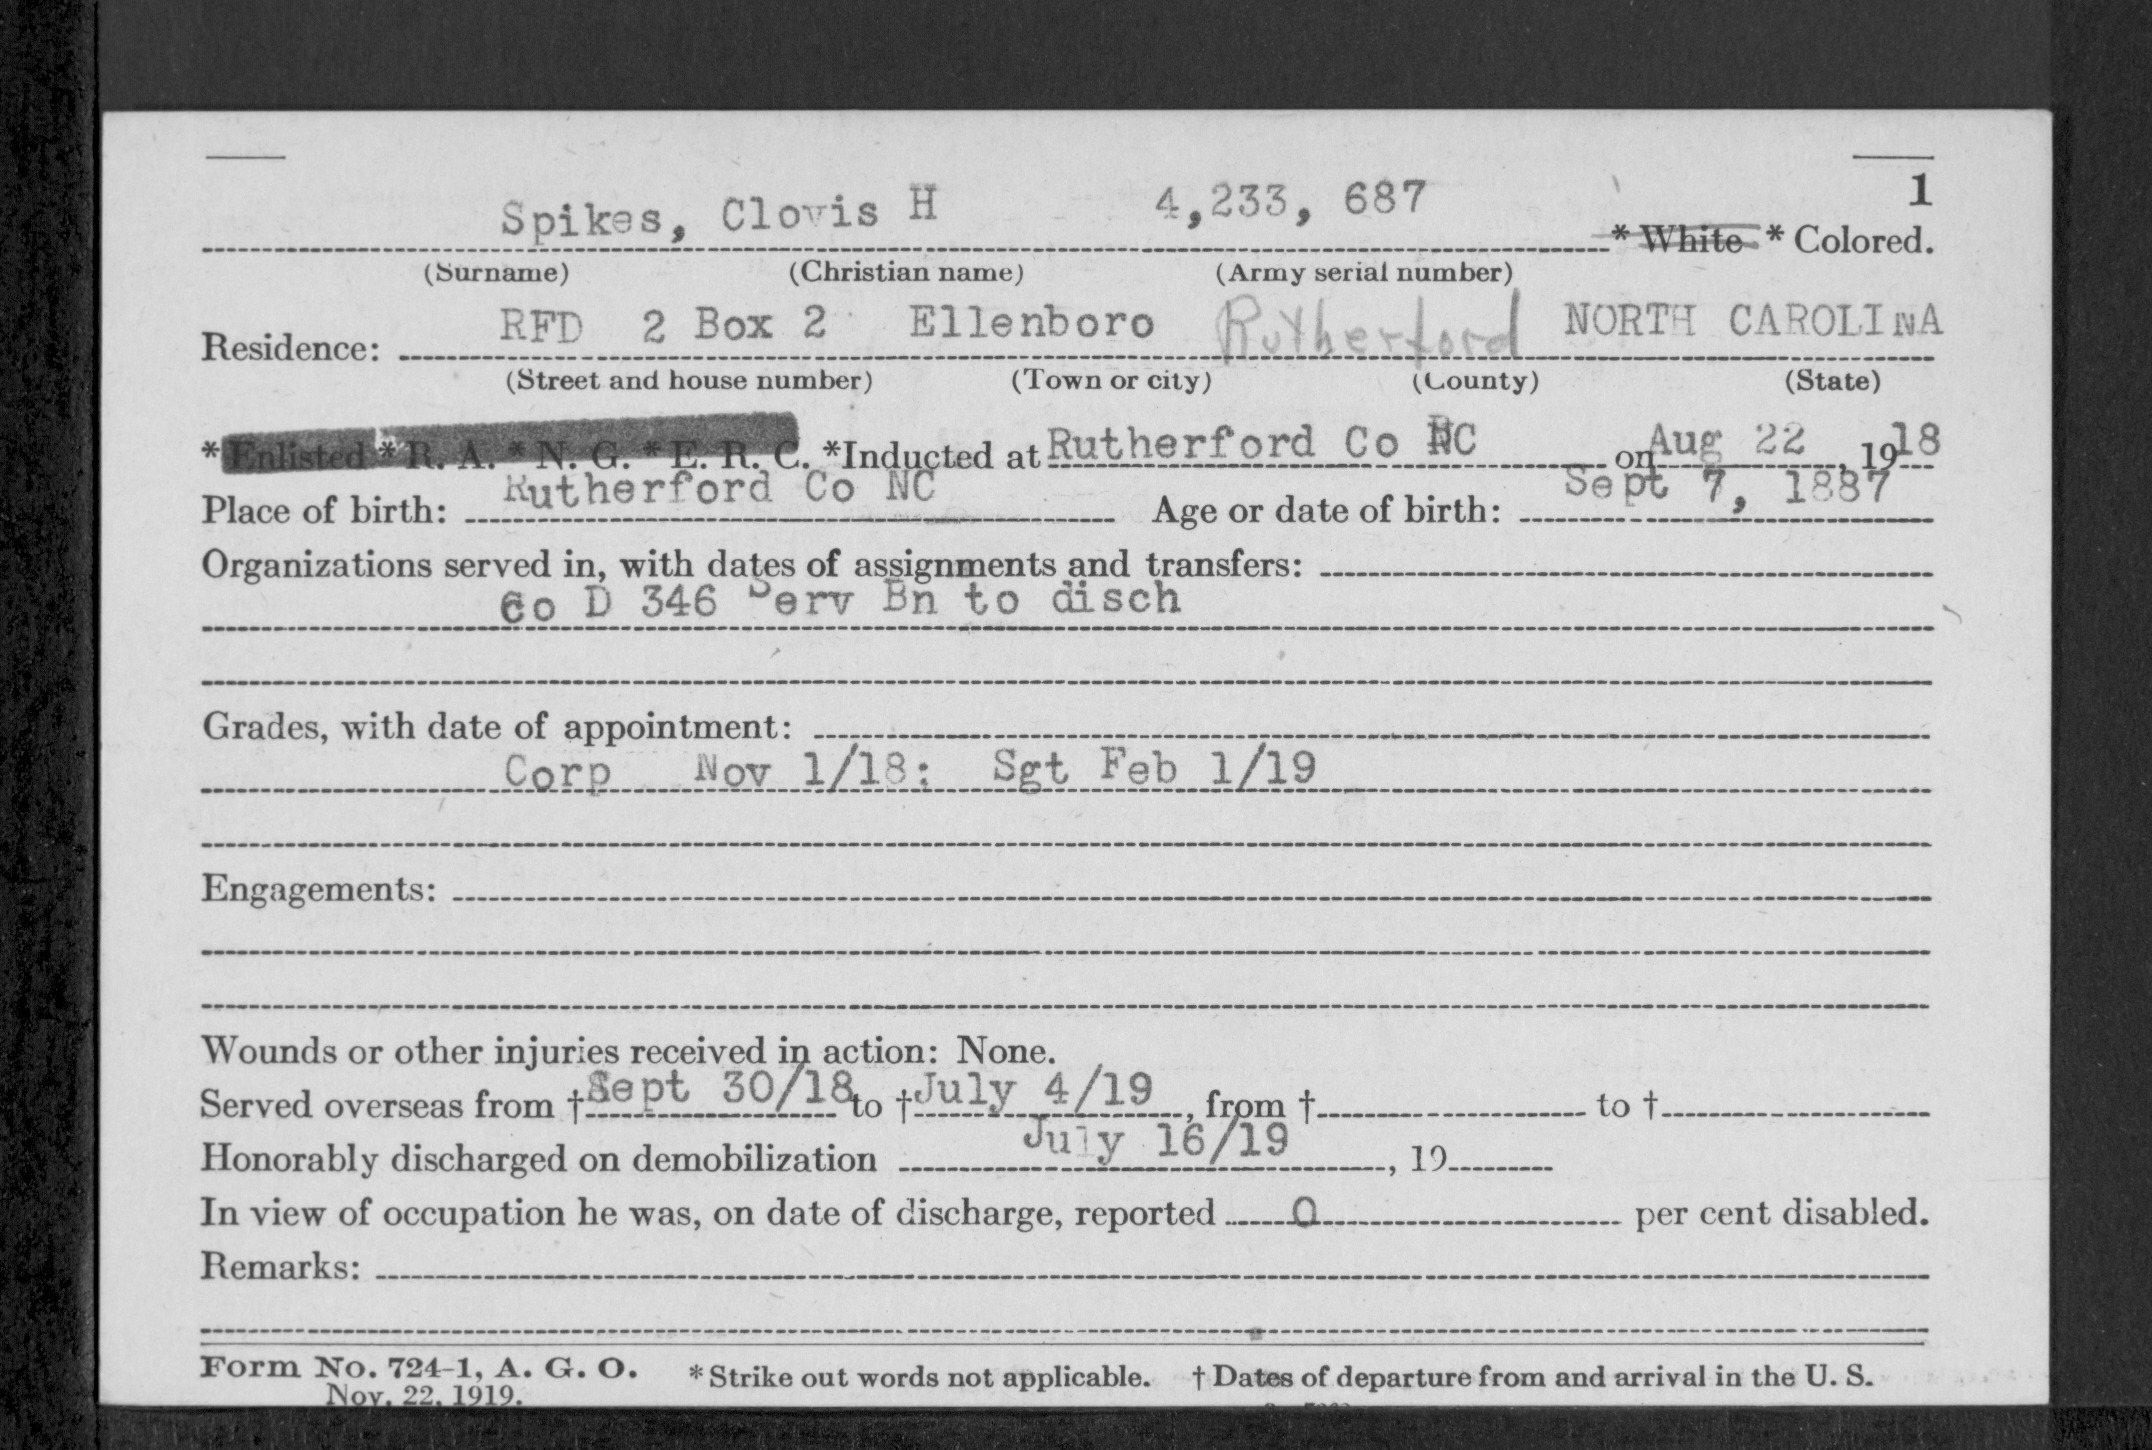 1
Spikes, Clovis H 4,233, 687 * White * Colored.
(Surname) (Christian name) (Army serial number)
Residence: RFD 2 Box 2 Ellenboro Rutherford NORTH CAROLINA
(Street and house number) (Town or city) (County) (State)
* Enlisted * R. A. * N. G. * E. R. C. *Inducted at Rutherford Co NC on Aug 22, 1918
Place of birth: Rutherford Co NC Age or date of birth: Sept 7, 1887
Organizations served in, with dates of assignments and transfers:
Co D 346 Serv Bn to disch
Grades, with date of appointment:
Corp Nov 1/18: Sgt Feb 1/19
Engagements:
Wounds or other injuries received in action: None.
Served overseas from † Sept 30/18 to † July 4/19, from † to †
Honorably discharged on demobilization July 16/19, 19
In view of occupation he was, on date of discharge, reported 0 per cent disabled.
Remarks:
Form No. 724-1, A. G. O. * Strike out words not applicable. † Dates of departure from and arrival in the U. S.
Nov. 22, 1919.